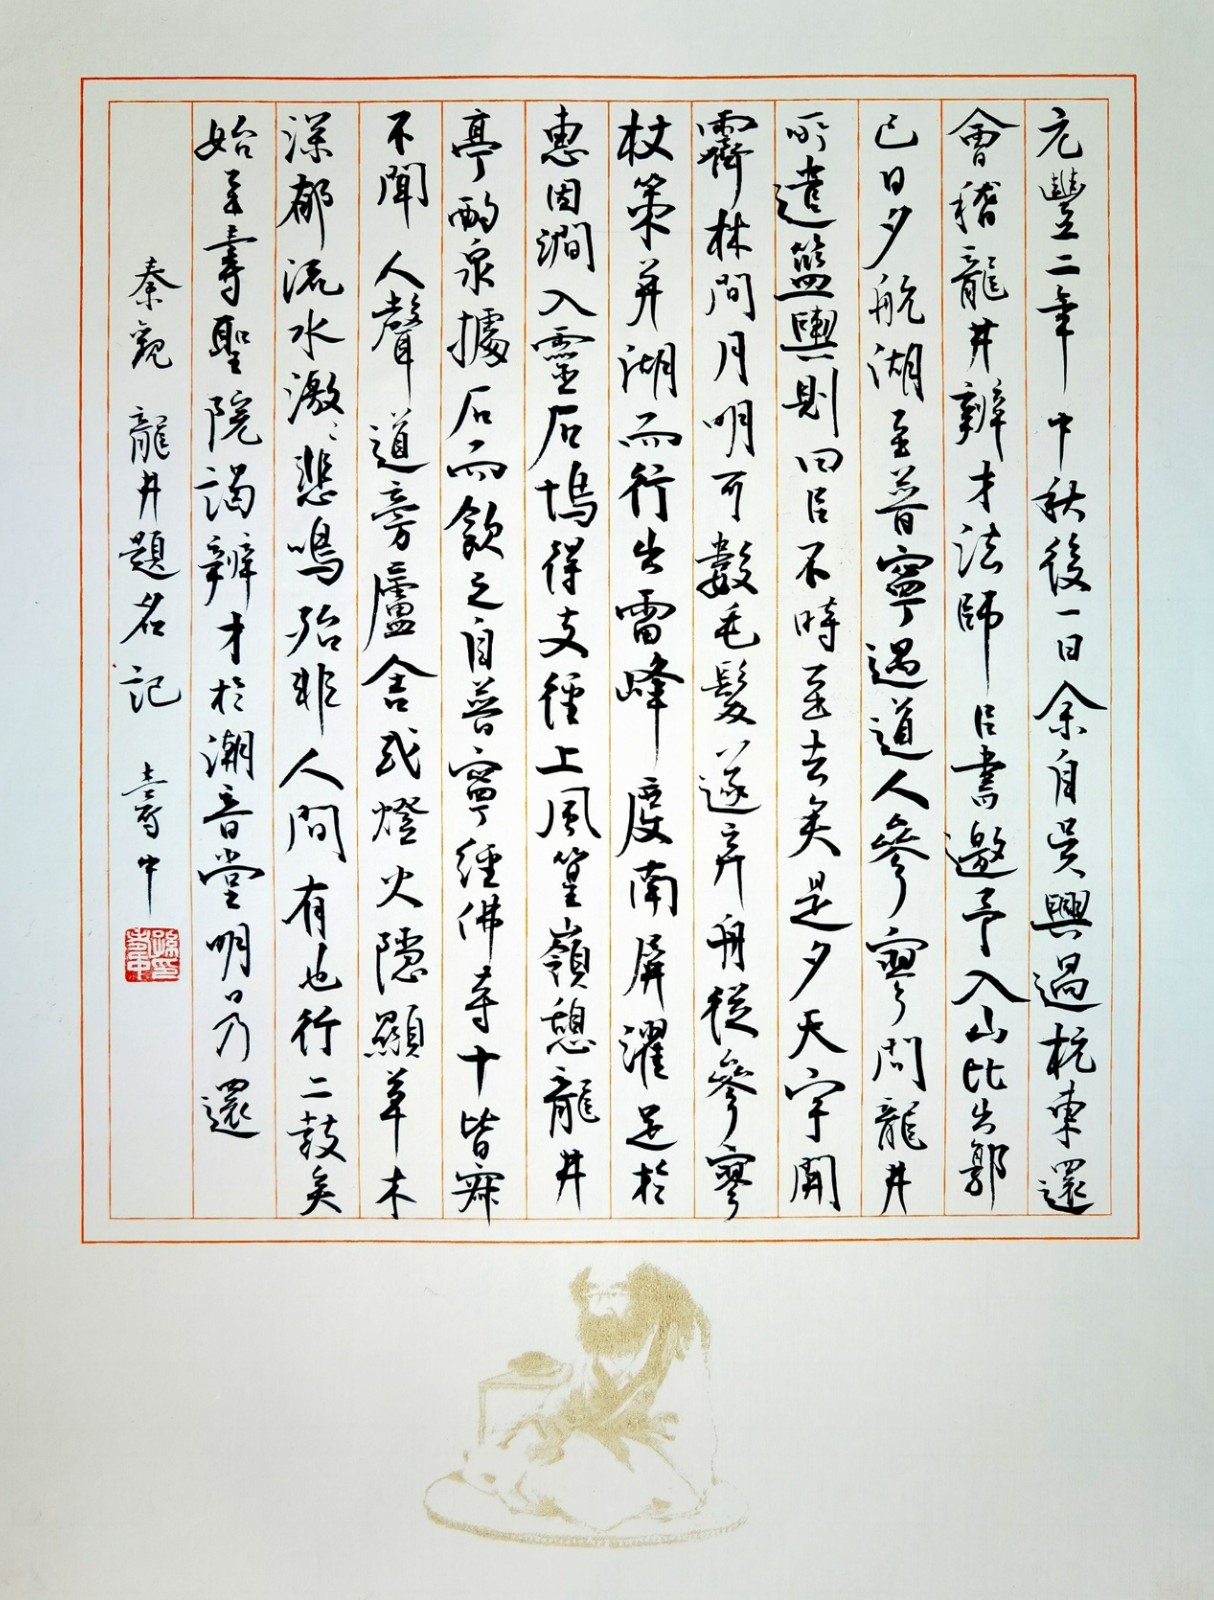 元豐二年中秋後一日余自吳興過杭東還
會稽龍井辨才法師㠯書邀予入山比出郭
已日夕航湖至普寧遇道人參寥問龍井
所遣籃輿則曰㠯不時至去矣是夕天宇開
霽林間月明可數毛髮遂弃舟從參寥
杖策并湖而行出雷峰度南屏濯足於
惠因澗入靈石塢得支徑上風篁嶺憩龍井
亭酌泉據石而飲之自普寧經佛寺十皆寂
不聞人聲道旁廬舍或燈火隱顯草木
深郁流水激〻悲鳴殆非人間有也行二鼓矣
始至壽聖院謁辨才於潮音堂明日乃還
秦觀 龍井題名記 壽中